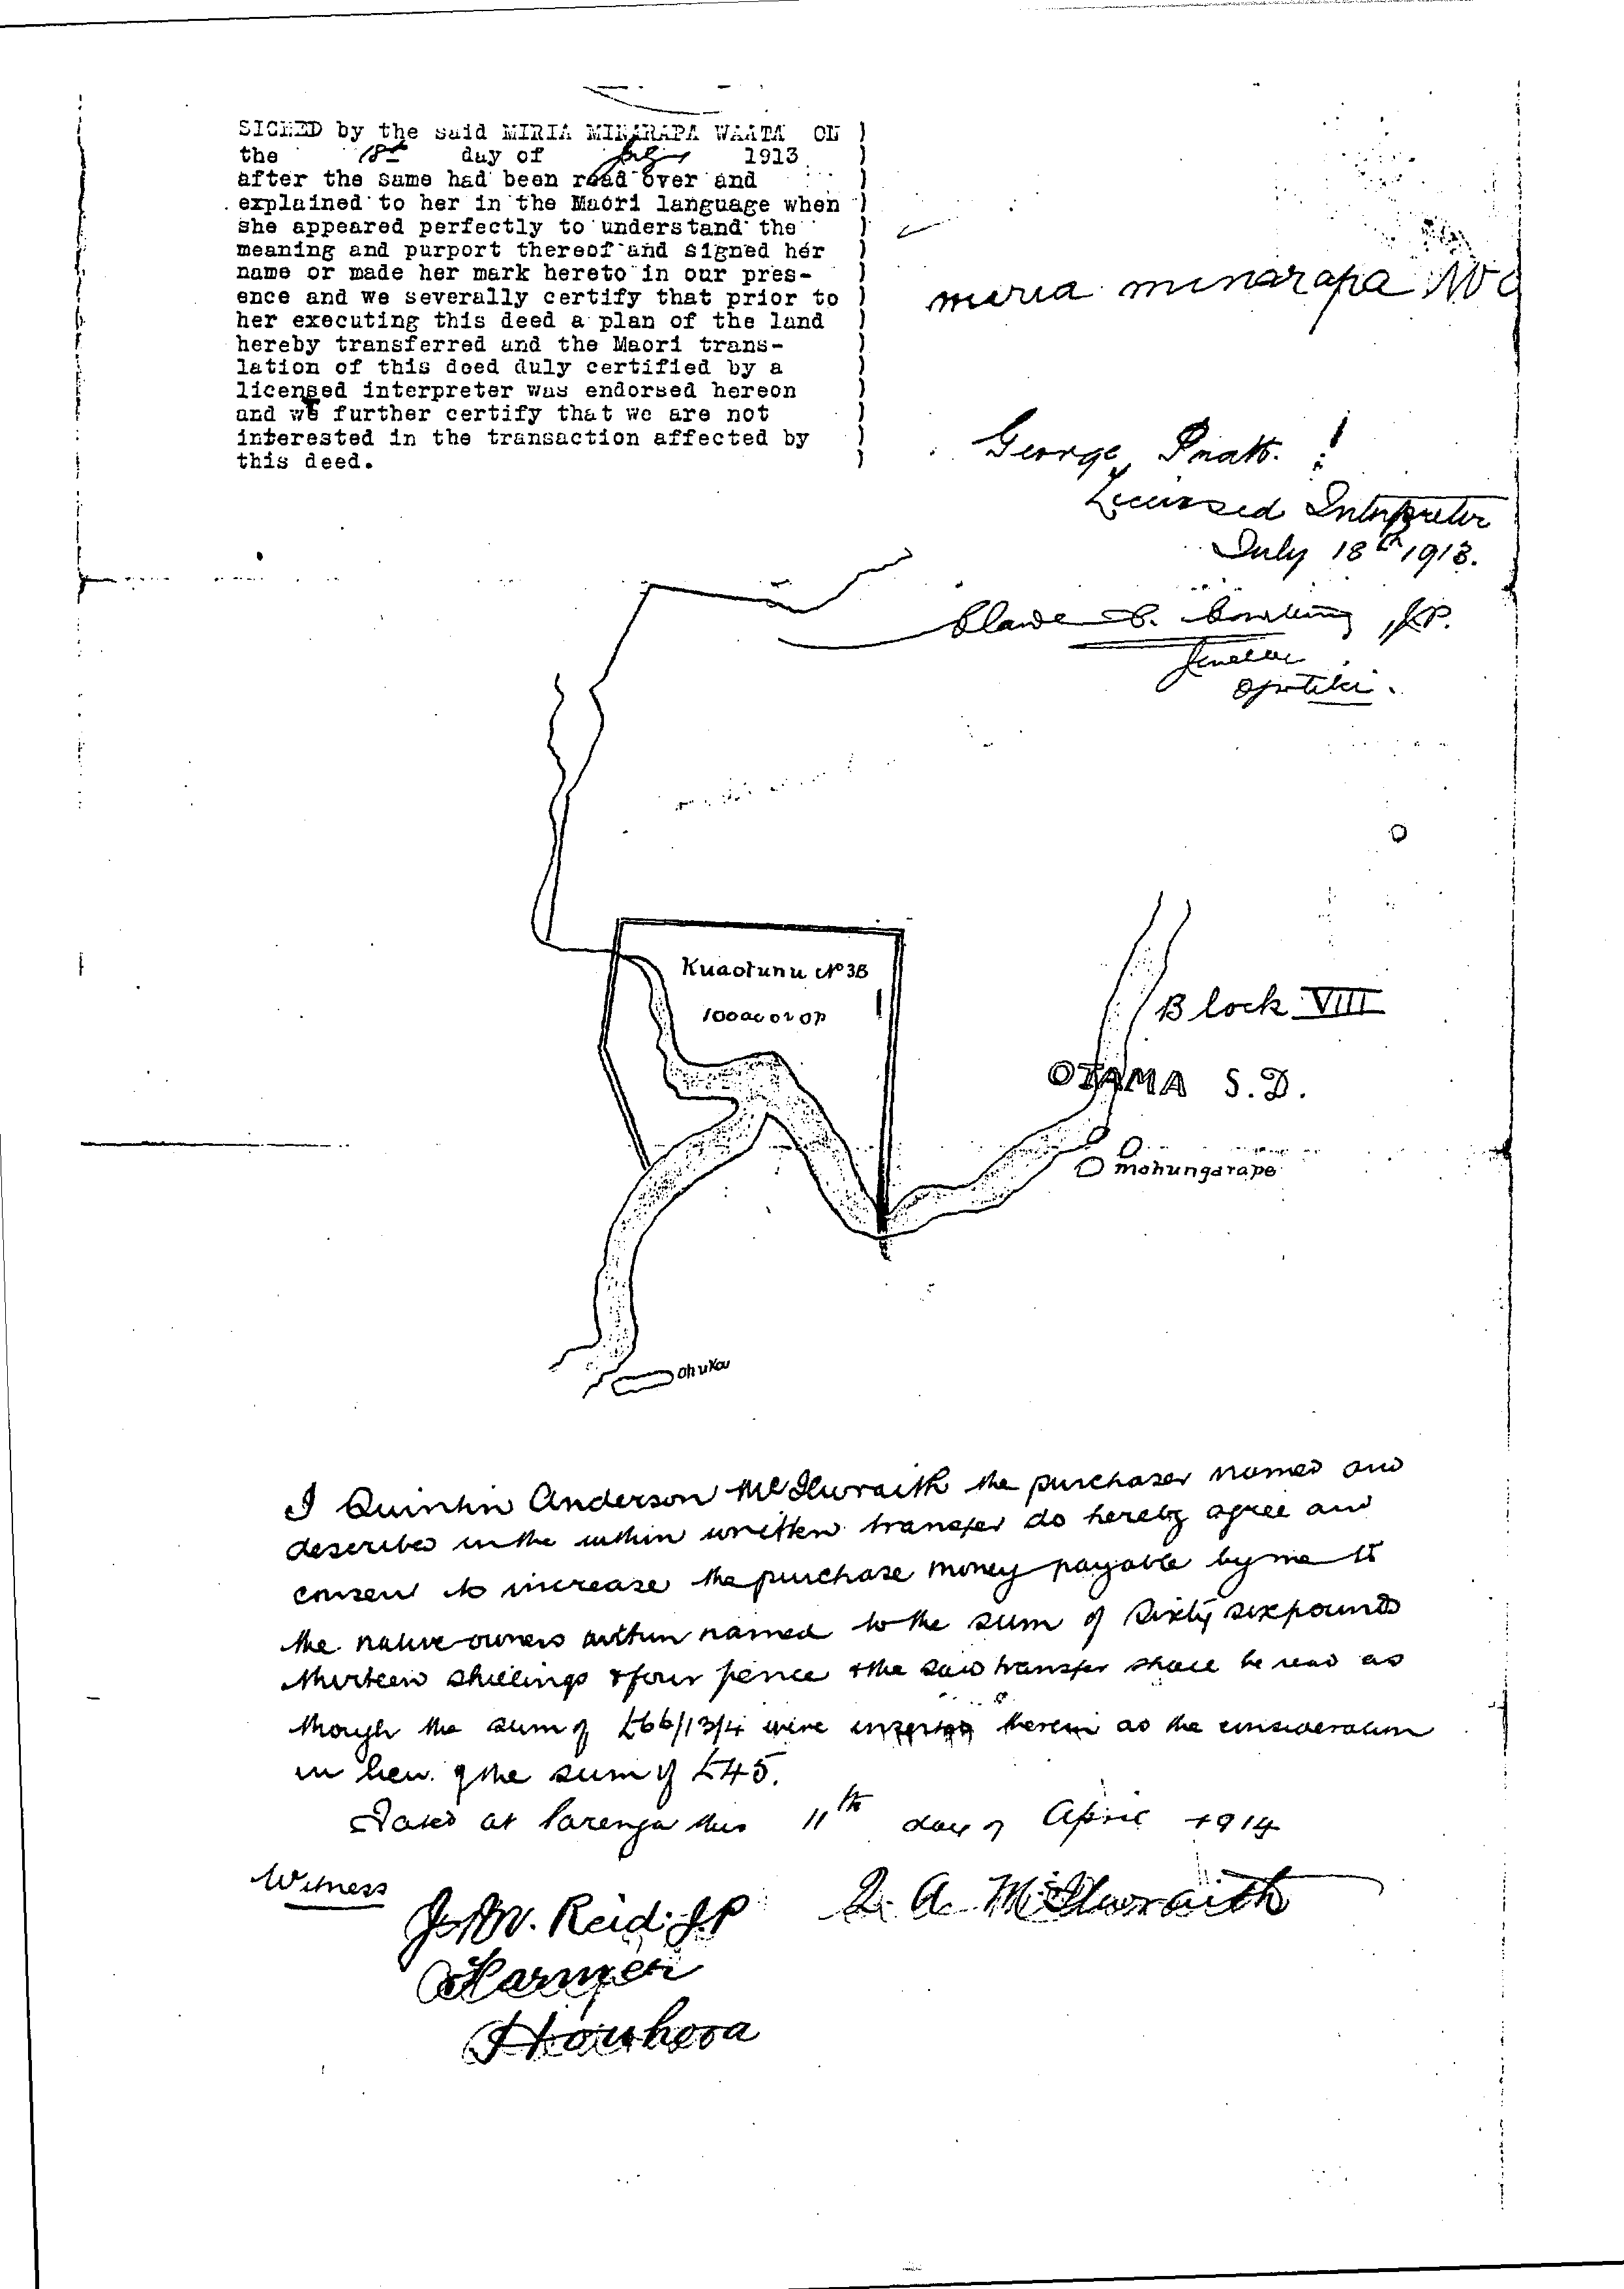 SIGNED by the said MIRIA MINARAPA WAATA ON )
the 18th day of July 1913 )
after the same had been read over and )
explained to her in the Maori language when )
she appeared perfectly to understand the )
meaning and purport thereof and signed her )
name or made her mark hereto in our pres- )
ence and we severally certify that prior to )
her executing this deed a plan of the land )
hereby transferred and the Maori trans- )
lation of this deed duly certified by a )
licensed interpreter was endorsed hereon )
and we further certify that we are not )
interested in the transaction affected by )
this deed. )
miria minarapa W
George Pratt. J
Licensed Interpreter
July 18th 1913.
Claude J.P.
Jeweller
Opotiki.
Kuaotunu No 3B
100ac 0r 0p
Block VIII
OTAMA S.D.
mahungarape
Ohukou
I Quintin Anderson McIlwraith the purchaser named and
described in the within written transfer do hereby agree and
consent to increase the purchase money payable by me to
the native owners within named to the sum of Sixty six pounds
thirteen shillings & four pence & the said transfer shall be read as
though the sum of £66/13/4 were inserted therein as the consideration
in lieu of the sum of £45.
Dated at Parenga this 11th day of April 1914
Witness
J. W. Reid J.P
Q. A. McIlwraith
Farmer
Houhora